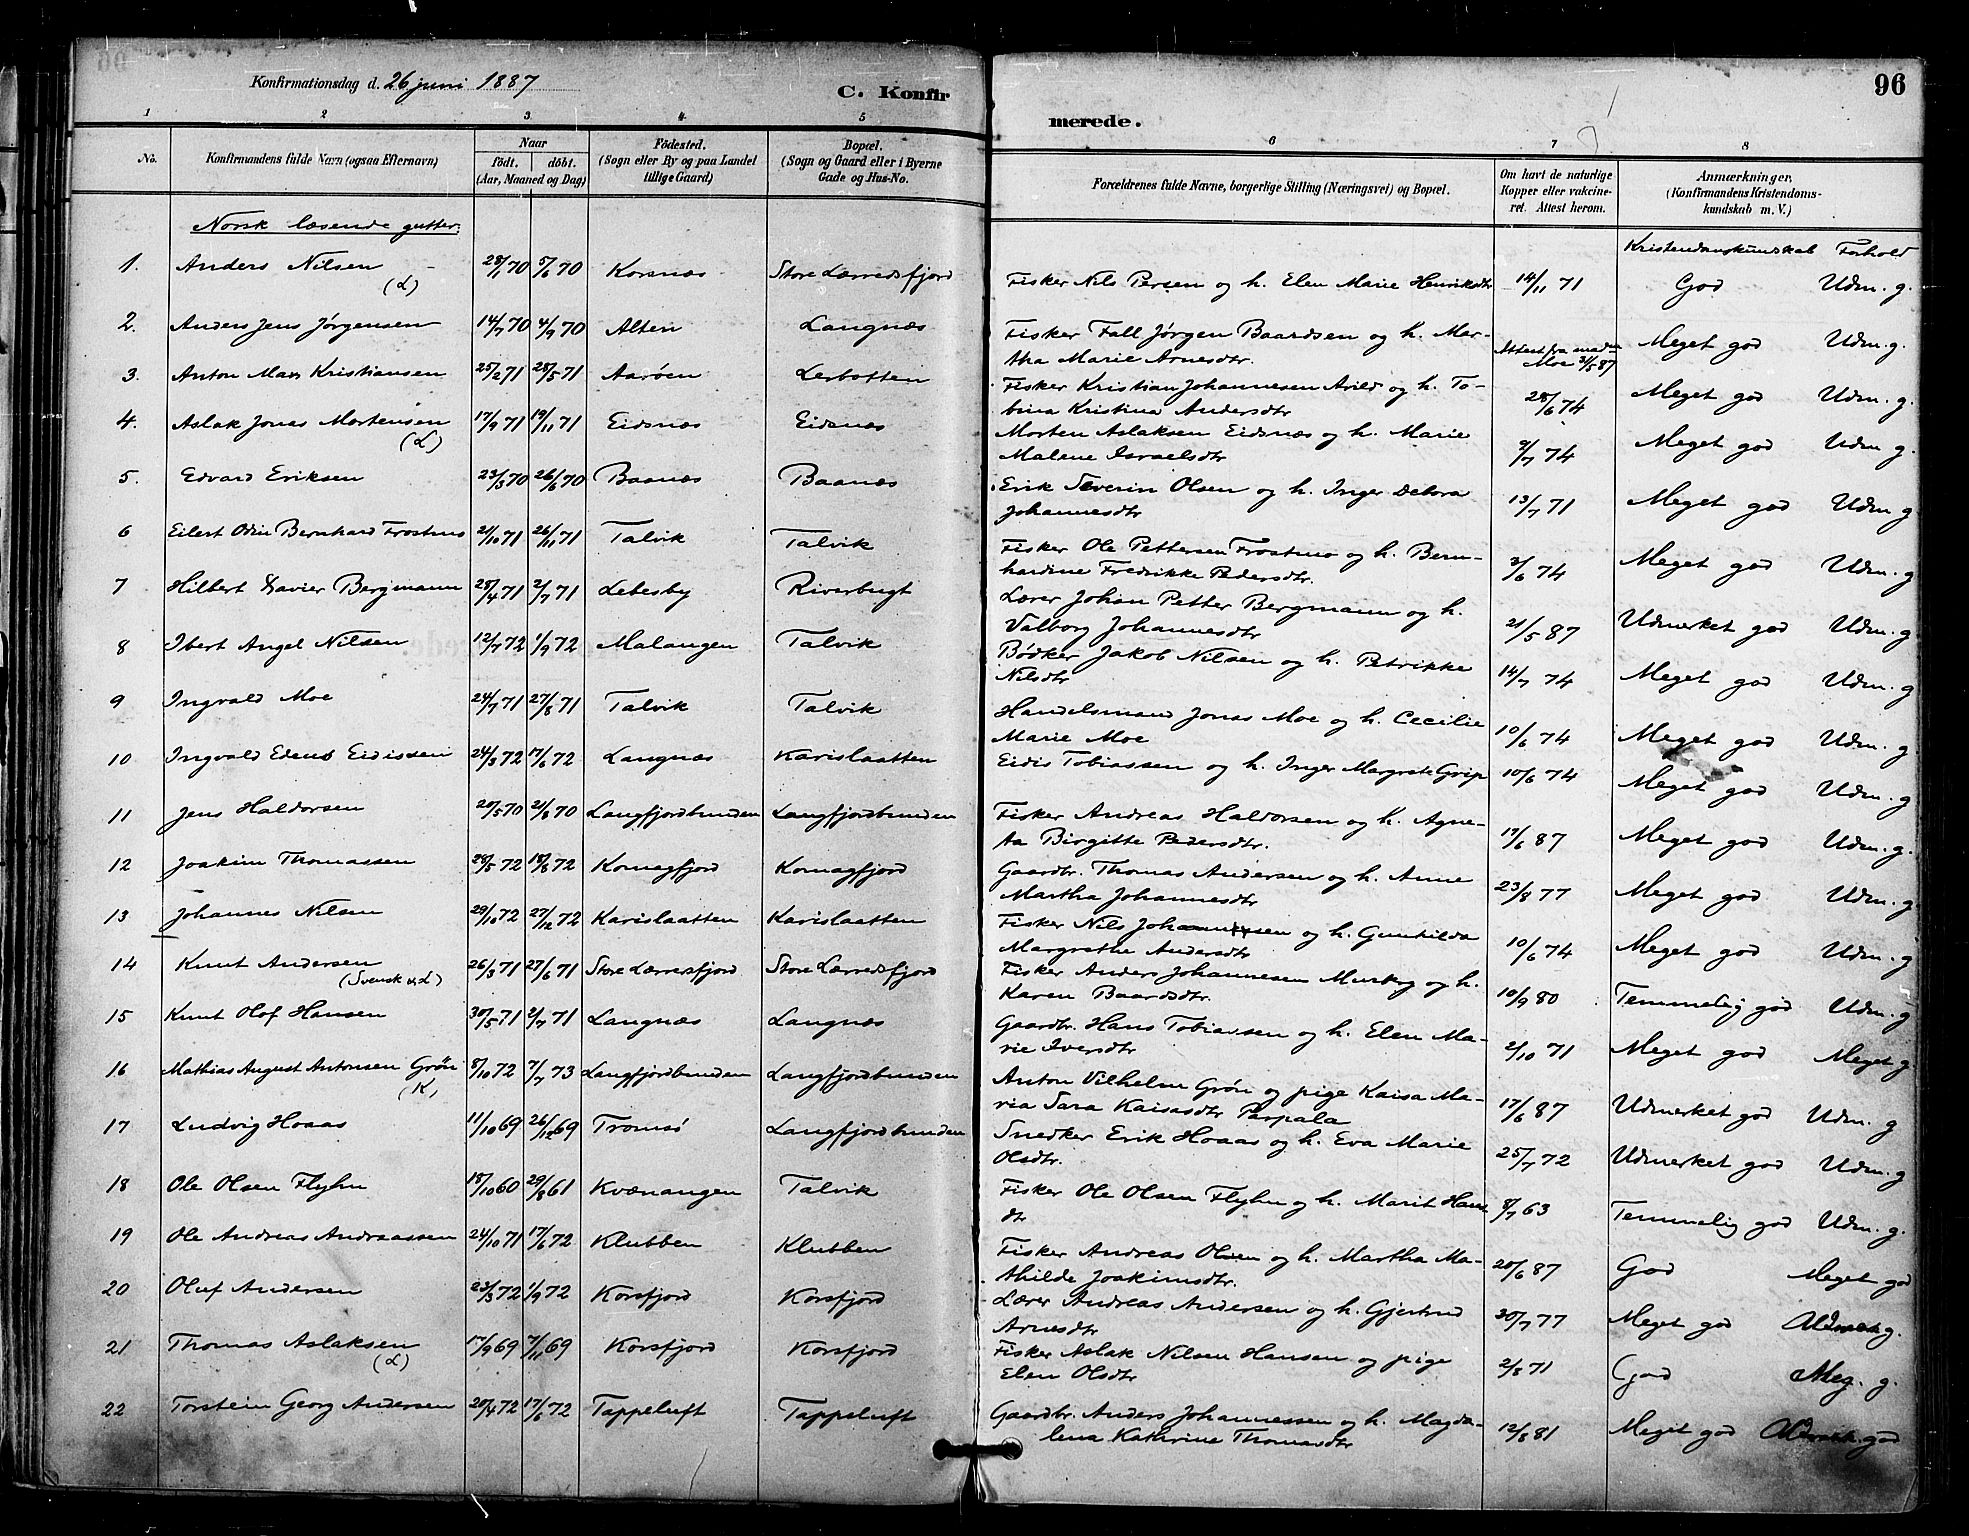 Konfirmationsdag d. 26 juni 1887
C. Konfir
merede.
96
1 2 3 4 5 6 7 8
No.
Konfirmandens fulde Navn (ogsaa Efternavn)
Naar
födt. döbt.
(Aar, Maaned og Dag)
Födested.
(Sogn eller By og paa Landet
tillige Gaard)
Bopæl.
(Sogn og Gaard eller i Byerne
Gade og Hus-No.
Forældrenes fulde Navne, borgerlige Stilling (Næringsvei) og Bopæl.
Om havt de naturlige
Kopper eller vakcine-
ret. Attest herom.
Anmærkninger,
(Konfirmandens Kristendoms-
kundskab m. V.)
Norsk læsende gutter:
Kristendomskundskab Forhold
1. Anders Nilsen 5/6 70 Korsnæs Store Lerredsfjord Fisker Nils Persen og h. Elen Marie Henriksdtr 14/11 71 God Udm. g.
(L)
2. Anders Jens Jørgensen 14/7 70 4/9 70 Alten Langnæs Fisker Fall Jørgen Baardsen og h. Mar-
tha Marie Arnesdtr. Attest fra
Moe 31/5 87 Meget god Udm. g.
3. Anton Max Kristiansen 25/2 71 28/5 71 Aarøen Lerbotten Fisker Kristian Johannesen Arild og h. To-
bina Kristina Andersdtr 28/6 74 Meget god Udm. g.
4. Aslak Jonas Mortensen 17/9 71 19/11 71 Eidsnæs Eidsnæs Morten Aslaksen Eidsnæs og h. Marie
(L) Malene Israelsdtr 9/7 74 Meget god Udm g.
5. Edvard Eriksen 23/3 70 26/6 70 Baanæs Baanæs Erik Severin Olsen og h. Inger Debora
Johannesdtr 13/7 71 Meget god Udm g.
6 Eilert Odin Bernhard Frostmo 21/10 71 26/11 71 Talvik Talvik Fisker Ole Pettersen Frostmo og h. Bern-
hardine Fredrikke Pedersdtr. 3/6 74 Meget god Udm. g
7 Hilbert Xavier Bergmann 28/4 71 2/7 71 Lebesby Riverbugt Lærer Johan Petter Bergmann og h.
Valborg Johannesdtr 21/5 87 Udmerket god Udm. g
8 Ibert Angel Nilsen 12/7 72 1/9 72 Malangen Talvik Bødker Jakob Nilsen og h. Petrikke
Nilsdtr 14/7 74 Meget god Udm. g
9 Ingvald Moe 24/7 71 27/8 71 Talvik Talvik Handelsmand Jonas Moe og h. Cecilie
Marie Moe 10/6 74 Meget god Udm. g
10 Ingvald Edens Eidissen 24/3 72 17/6 72 Langnæs Karislaatten Eidis Tobiassen og h. Inger Margrete Grip 10/6 74 Meget god Udm. g
11 Jens Haldorsen 20/5 70 21/8 70 Langfjordbunden Langfjordbunden Fisker Andreas Haldorsen og h. Agne-
ta Birgitte Pedersdtr. 17/6 87 Meget god Udm. g.
12 Joakim Thomassen 28/5 72 18/8 72 Komagfjord Komagfjord Gaardbr. Thomas Andersen og h. Anne
Martha Johannesdtr 23/8 77 Meget god Udm. g
13 Johannes Nilsen 29/10 72 27/12 72 Karislaatten Karislaatten Fisker Nils Johannessen og h. Gunhilda
Margrethe Andersdtr 10/6 74 Meget god Udm. g
14 Knut Andersen 26/3 71 27/6 71 Store Lerresfjord Store Lerredsfjord Fisker Anders Johannesen Murberg og h.
(Svensk u. L) Karen Baardsdtr. 10/9 80 Temmelig god Udm. g
15 Knut Olof Hansen 30/5 71 2/7 71 Langnæs Langnæs Gaardbr. Hans Tobiassen og h. Elen Ma-
rie Iversdtr 2/10 71 Meget god Meget g
16 Mathias August Antonsen Grön 8/10 72 7/7 73 Langfjordbunden Langfjordbunden Anton Vilhelm Grön og pige Kaisa Ma-
(K) ria Sara Kaisasdtr Parpala 17/6 87 Udmerket god Udm. g
17 Ludvig Hoaas 11/10 69 26/12 69 Tromsö Langfjordbunden Snedker Erik Hoaas og h. Eva Marie
Olsdtr. 25/7 72 Udmerket god Udm. g
18 Ole Olsen Flyhn 18/10 60 29/8 61 Kvænangen Talvik Fisker Ole Olsen Flyhn og h. Marit Hans
dtr 8/7 63 Temmelig god Udm. g.
19 Ole Andreas Andreassen 24/10 71 17/6 72 Klubben Klubben Fisker Andreas Olsen og h. Martha Ma-
thilde Joakimsdtr. 20/6 87 God Meget god
20 Oluf Andersen 23/3 72 1/9 72 Korsfjord Korsfjord Lærer Andreas Andersen og h. Gjertrud
Arnesdtr 30/7 77 Meget god g.
21 Thomas Aslaksen 17/9 69 7/11 69 Korsfjord Korsfjord Fisker Aslak Nilsen Hansen og pige
(L) Elen Olsdtr 2/8 71 God Meg. g.
22 Torstein Georg Andersen 20/4 72 17/6 72 Tappeluft Tappeluft Gaardbr. Anders Johannessen og h. Magda-
lena Kathrine Thomasdtr 12/8 81 Meget god god